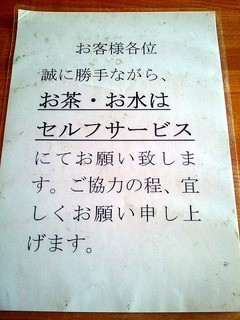 お客様各位
誠に勝手ながら、
お茶・お水は
セルフサービス
にてお願い致しま
す。ご協力の程、宜
しくお願い申し上
げます。